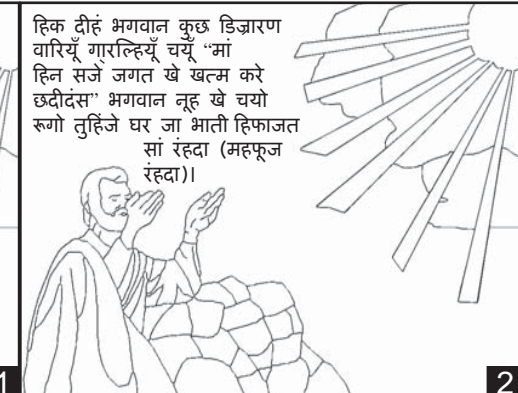 हिक दीहं भगवान कुछ डि॒ज्रारण
वारियूँ गा॒रल्हियूँ चयूँ “मां
हिन सजे जगत खे खत्म करे
छदीदंस” भगवान नूह खे चयो
रूगो तुहिंजे घर जा भाती हिफाजत
सां रंहदा (महफूज
रंहदा)।
1
2